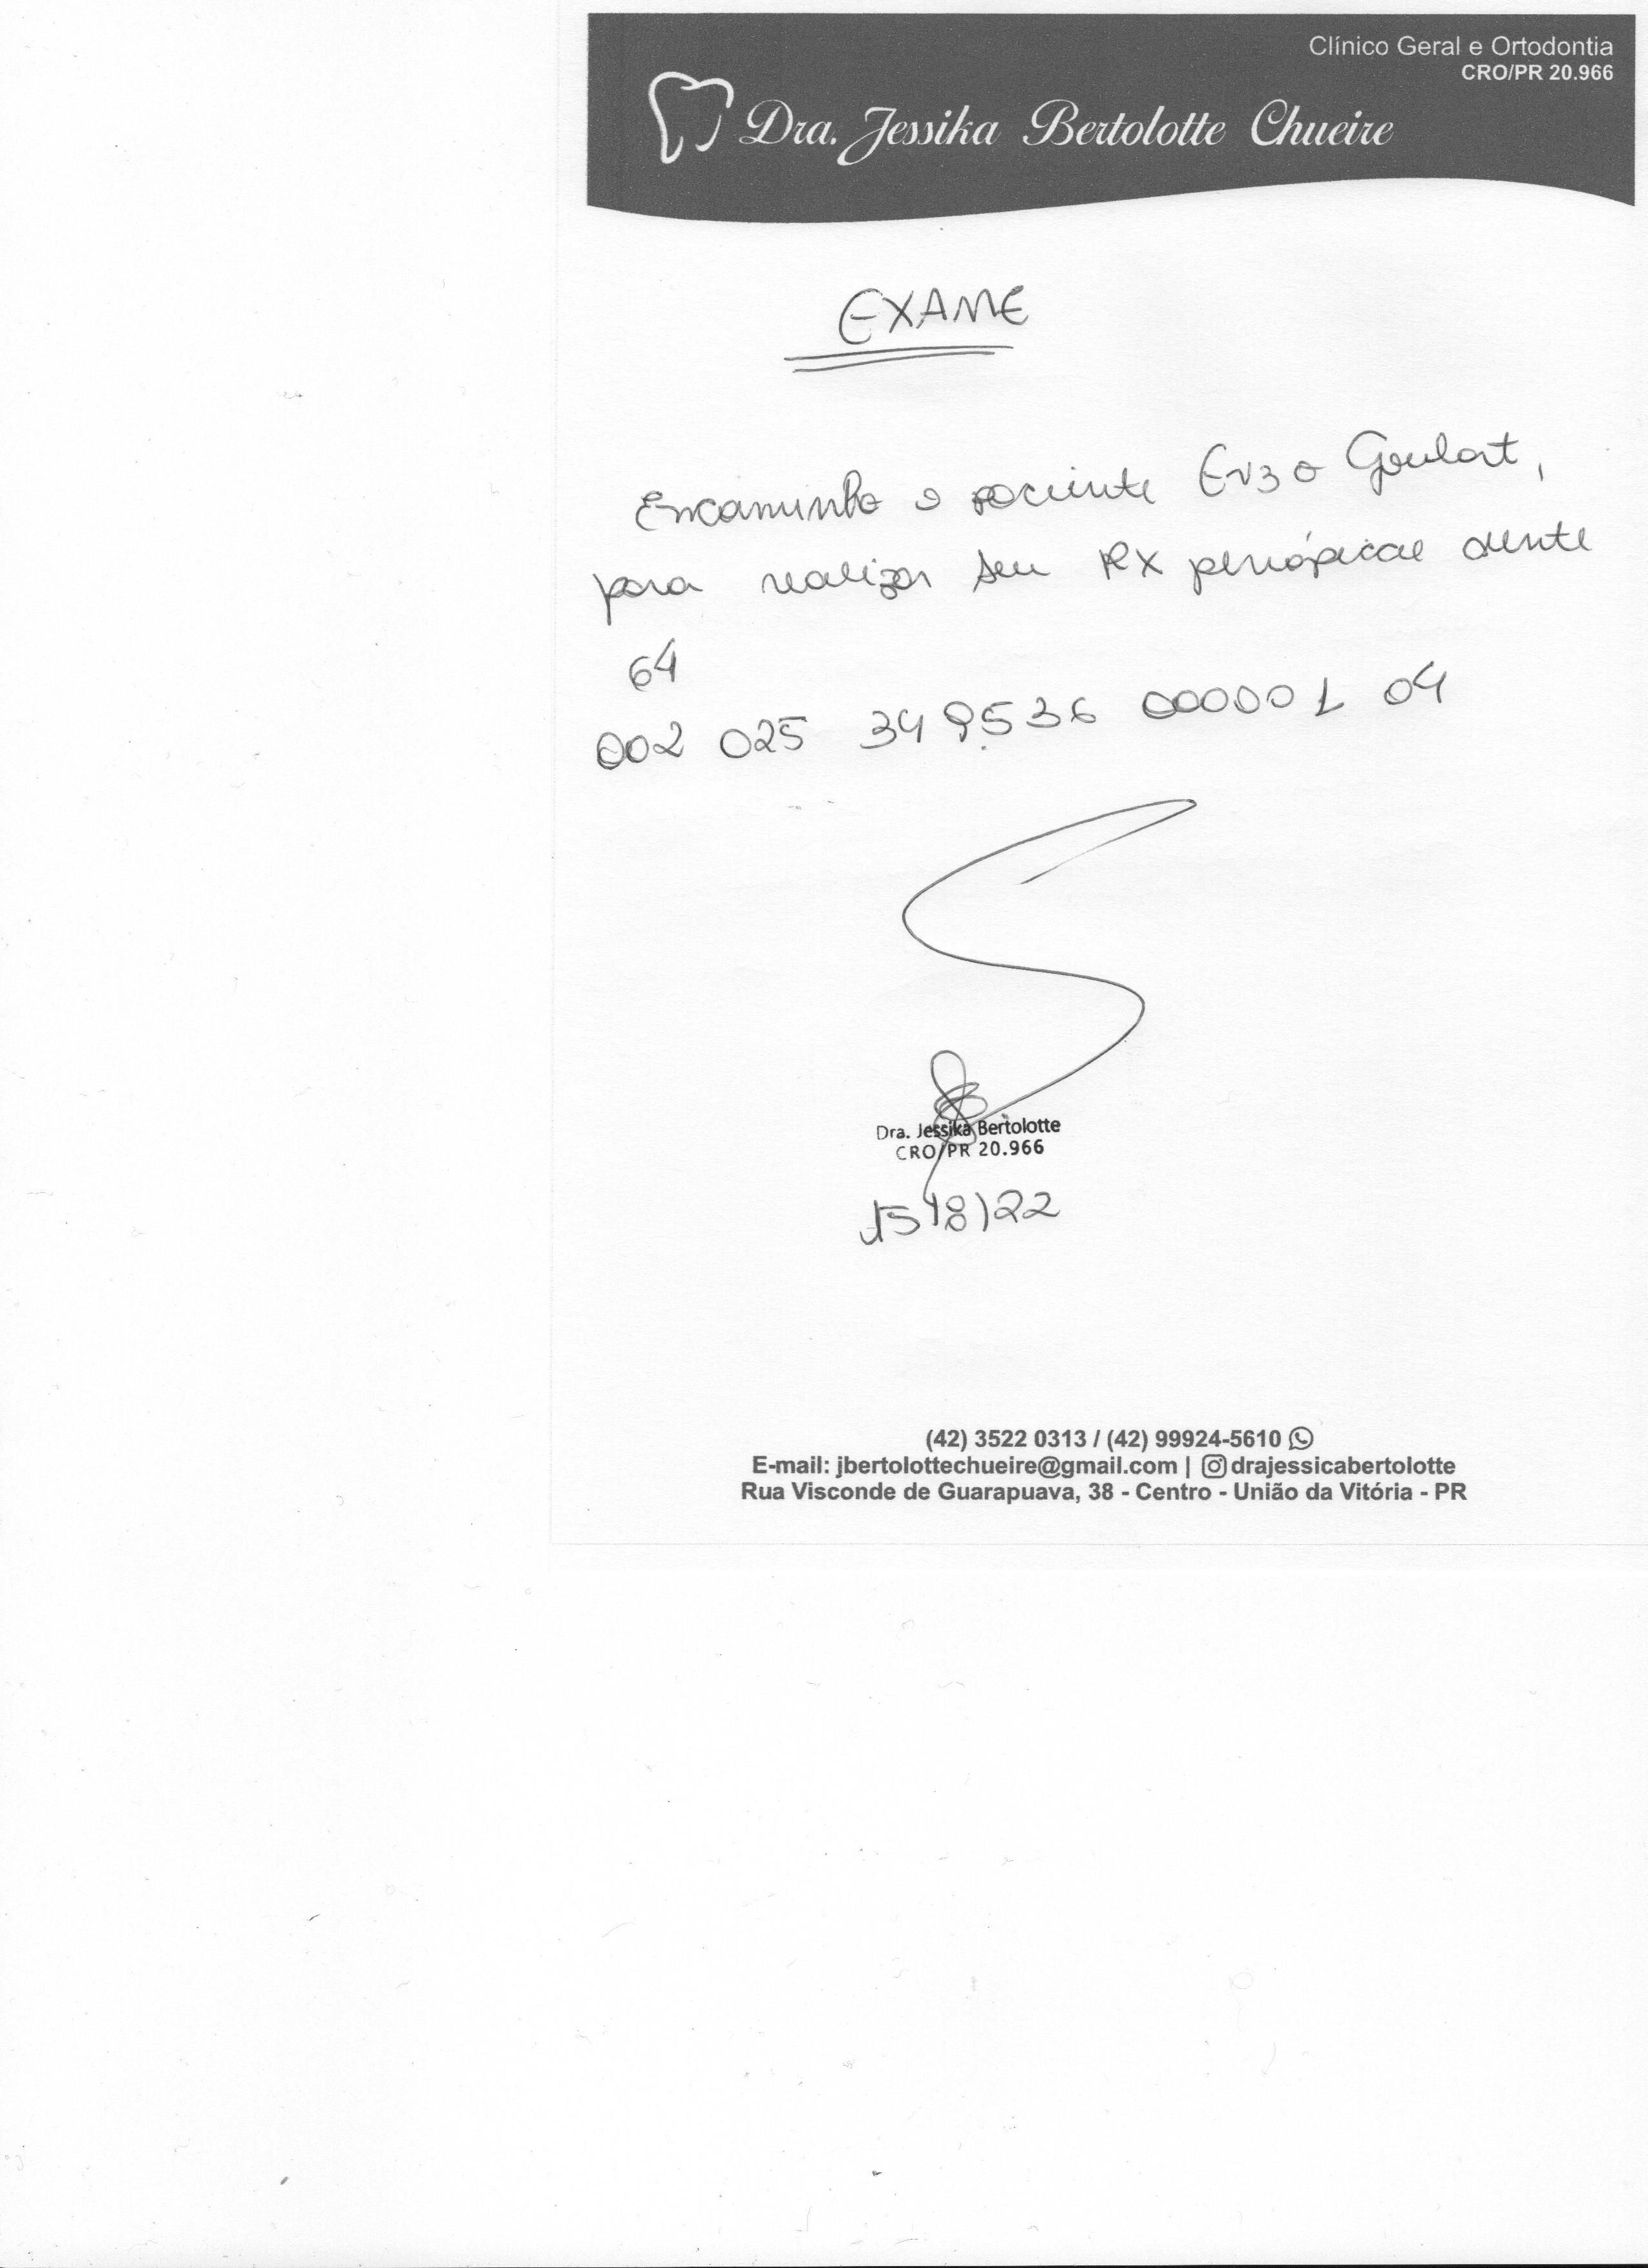 Clínico Geral e Ortodontia
CRO/PR 20.966
Dra. Jessika Bertolotte Chueire
EXAME
Encaminho o paciente Enzo Goulart,
para realizar seu RX periápical dente
64
002 025 349536 000001 04
Dra. Jessika Bertolotte
CRO/PR 20.966
15/8/22
(42) 3522 0313 / (42) 99924-5610
E-mail: jbertolottechueire@gmail.com | drajessicabertolotte
Rua Visconde de Guarapuava, 38 - Centro - União da Vitória - PR